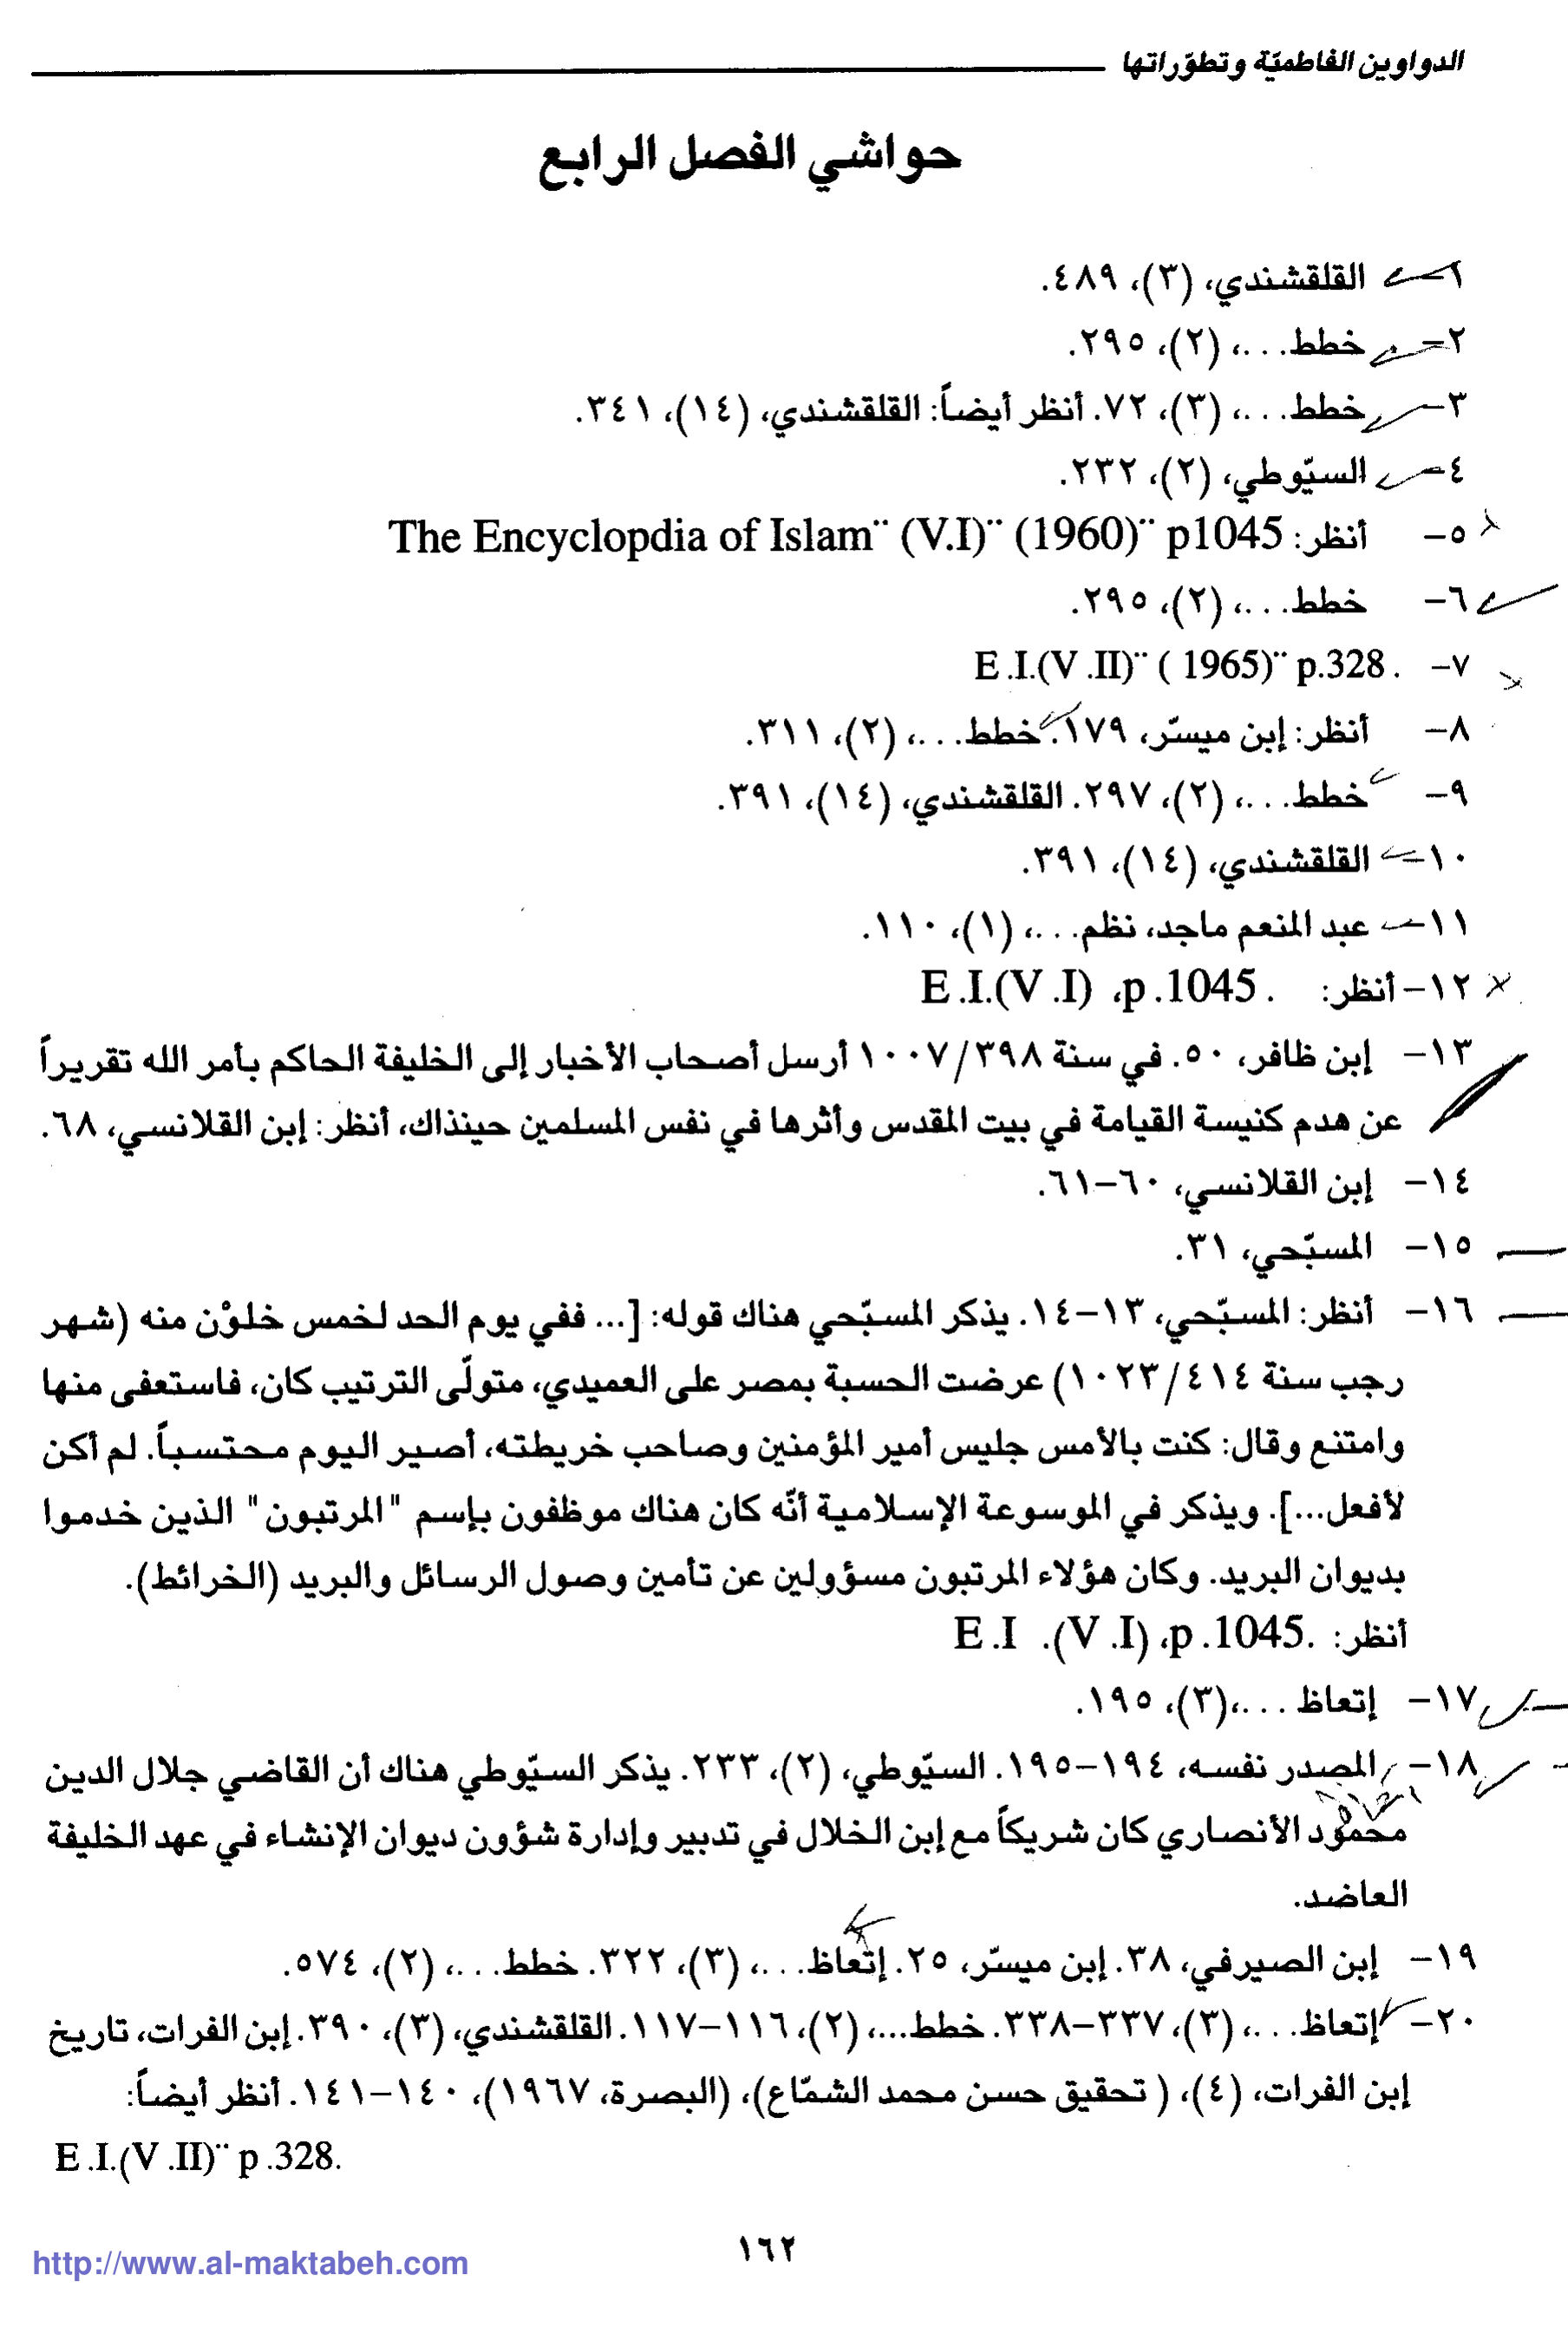 الدواوين الفاطميّة وتطوّراتها
حواشي الفصل الرابع
١– القلقشندي، (٣)، ٤٨٩.
٢– خطط...، (٢)، ٢٩٥.
٣– خطط...، (٣)، ٧٢. أنظر أيضاً: القلقشندي، (١٤)، ٣٤١.
٤– السيّوطي، (٢)، ٢٣٢.
٥– أنظر: The Encyclopdia of Islam¨ (V.I)¨ (1960)¨ p1045
٦– خطط...، (٢)، ٢٩٥.
٧– E.I.(V.II)¨ ( 1965)¨ p.328.
٨– أنظر: إبن ميسّر، ١٧٩. خطط...، (٢)، ٣١١.
٩– خطط...، (٢)، ٢٩٧. القلقشندي، (١٤)، ٣٩١.
١٠– القلقشندي، (١٤)، ٣٩١.
١١– عبد المنعم ماجد، نظم...، (١)، ١١٠.
١٢– أنظر: E.I.(V.I) ،p.1045.
١٣– إبن ظافر، ٥٠. في سنة ٣٩٨/١٠٠٧ أرسل أصحاب الأخبار إلى الخليفة الحاكم بأمر الله تقريراً
عن هدم كنيسة القيامة في بيت المقدس وأثرها في نفس المسلمين حينذاك، أنظر: إبن القلانسي، ٦٨.
١٤– إبن القلانسي، ٦٠–٦١.
١٥– المسبّحي، ٣١.
١٦– أنظر: المسبّحي، ١٣–١٤. يذكر المسبّحي هناك قوله: [... ففي يوم الحد لخمس خلوْن منه (شهر
رجب سنة ٤١٤/١٠٢٣) عرضت الحسبة بمصر على العميدي، متولّى الترتيب كان، فاستعفى منها
وامتنع وقال: كنت بالأمس جليس أمير المؤمنين وصاحب خريطته، أصير اليوم محتسباً. لم أكن
لأفعل...]. ويذكر في الموسوعة الإسلامية أنّه كان هناك موظفون بإسم "المرتبون" الذين خدموا
بديوان البريد. وكان هؤلاء المرتبون مسؤولين عن تأمين وصول الرسائل والبريد (الخرائط).
أنظر: E.I .(V.I) ،p.1045.
١٧– إتعاظ ...،(٣)، ١٩٥.
١٨– المصدر نفسه، ١٩٤–١٩٥. السيّوطي، (٢)، ٢٣٣. يذكر السيّوطي هناك أن القاضي جلال الدين
محمود الأنصاري كان شريكاً مع إبن الخلال في تدبير وإدارة شؤون ديوان الإنشاء في عهد الخليفة
العاضد.
١٩– إبن الصيرفي، ٣٨. إبن ميسّر، ٢٥. إتعاظ...، (٣)، ٣٢٢. خطط...، (٢)، ٥٧٤.
٢٠– إتعاظ...، (٣)، ٣٣٧–٣٣٨. خطط...، (٢)، ١١٦–١١٧. القلقشندي، (٣)، ٣٩٠. إبن الفرات، تاريخ
إبن الفرات، (٤)، ( تحقيق حسن محمد الشمّاع)، (البصرة، ١٩٦٧)، ١٤٠–١٤١. أنظر أيضاً:
E.I.(V.II)¨ p.328.
١٦٢
http://www.al-maktabeh.com